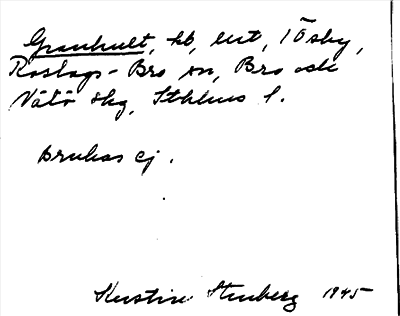 Granhult, kb, ent, 1 Ösby,
Roslags-Bro sn, Bro och
Vätö skg, Sthlms l.
Brukas ej.
Kerstin Stenberg 1945